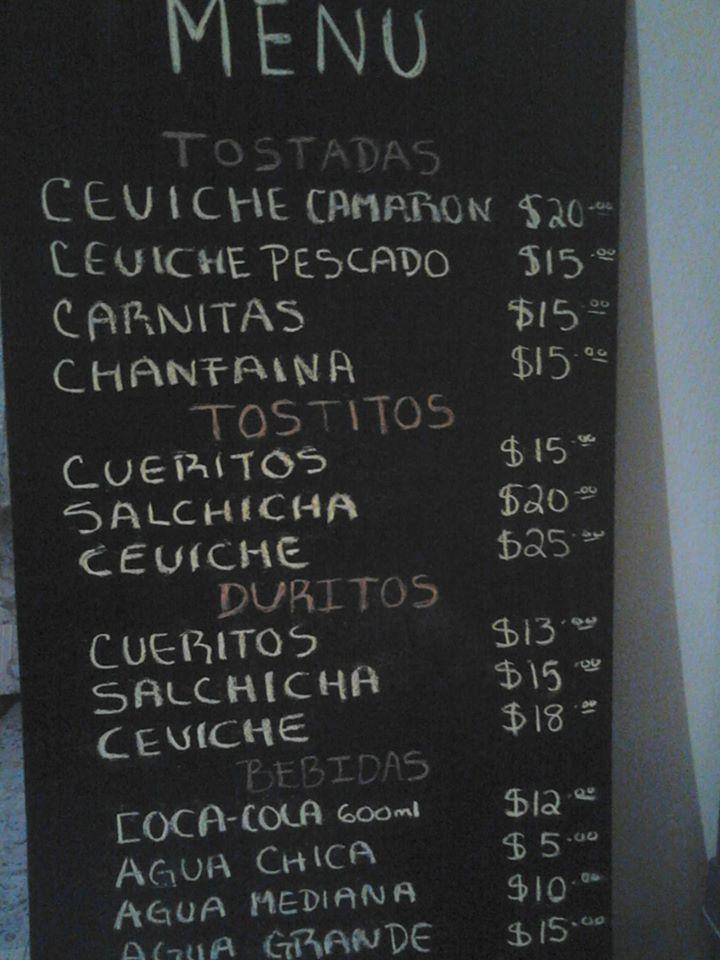 MENU
TOSTADAS
CEVICHE CAMARON $20.00
CEVICHE PESCADO $15.00
CARNITAS $15.00
CHANFAINA $15.00
TOSTITOS
CUERITOS $15.00
SALCHICHA $20.00
CEVICHE $25.00
DURITOS
CUERITOS $13.00
SALCHICHA $15.00
CEVICHE $18.00
BEBIDAS
COCA-COLA 600ml $12.00
AGUA CHICA $5.00
AGUA MEDIANA $10.00
AGUA GRANDE $15.00